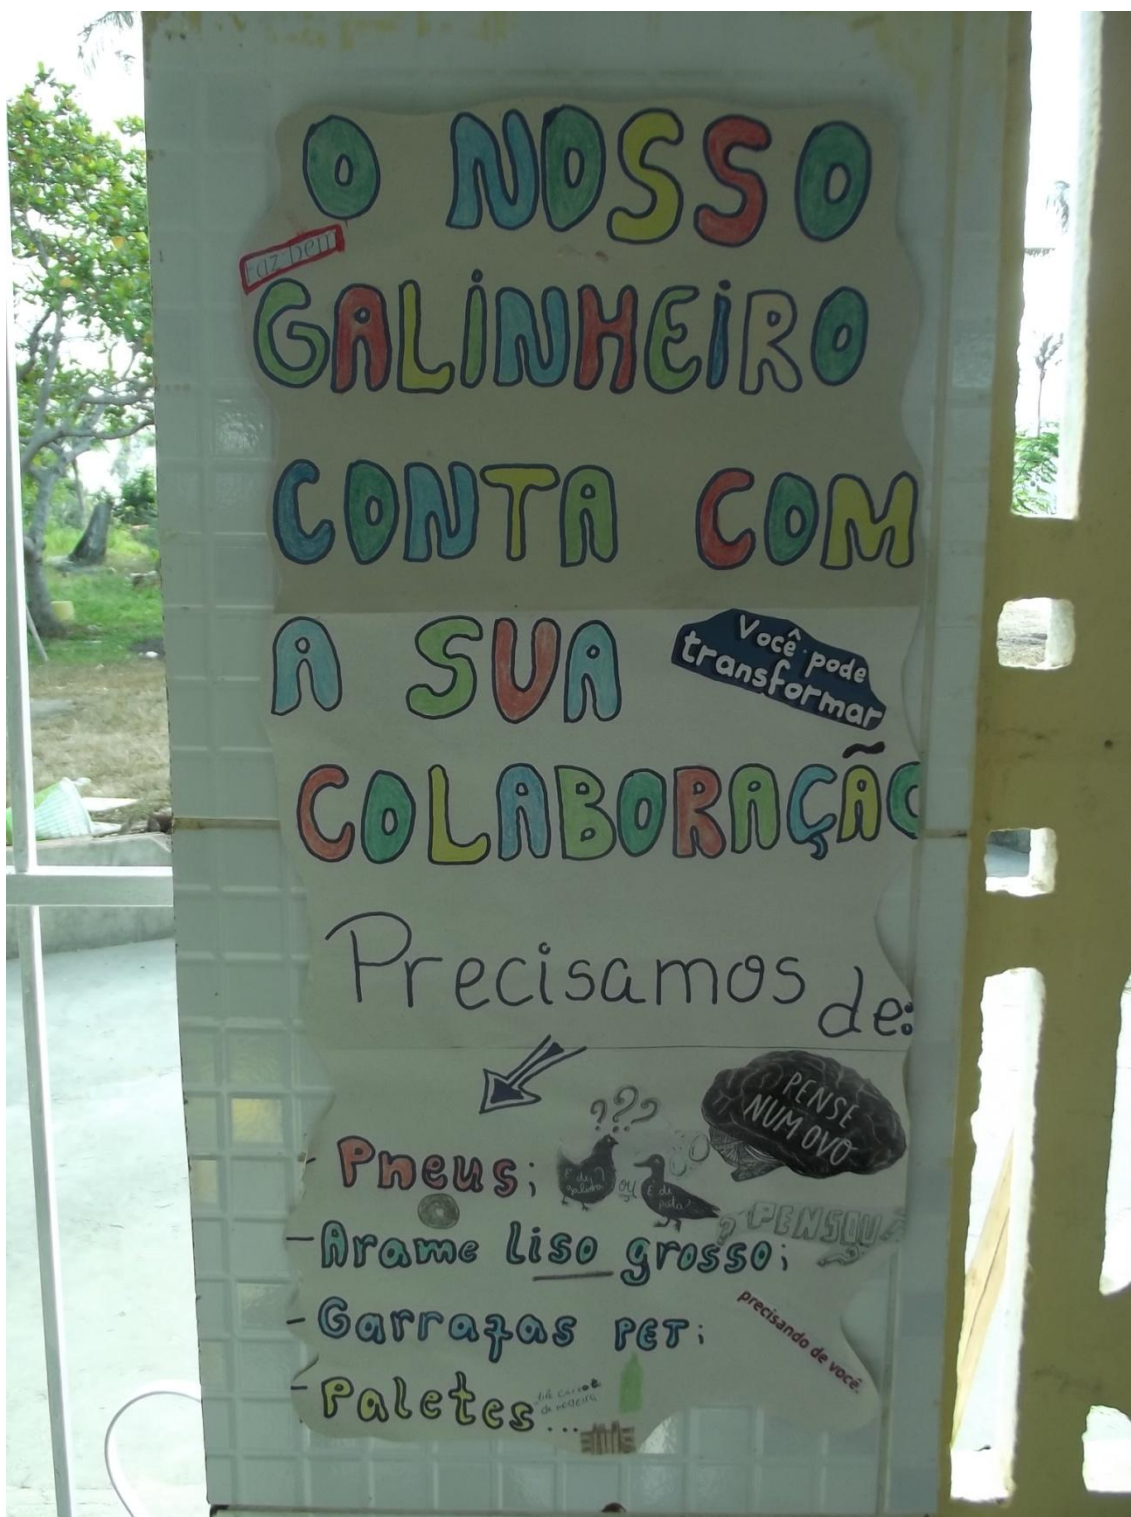 O NOSSO
Faz bem
GALINHEIRO
CONTA COM
A SUA
Você pode
transformar
COLABORAÇÃO
Precisamos de:
PENSE
NUM OVO
???
- Pneus;
É de
galinha?
ou
É de
pata?
PENSOU
- Arame liso grosso;
- Garrafas PET;
precisando de você.
- Paletes...
de madeira